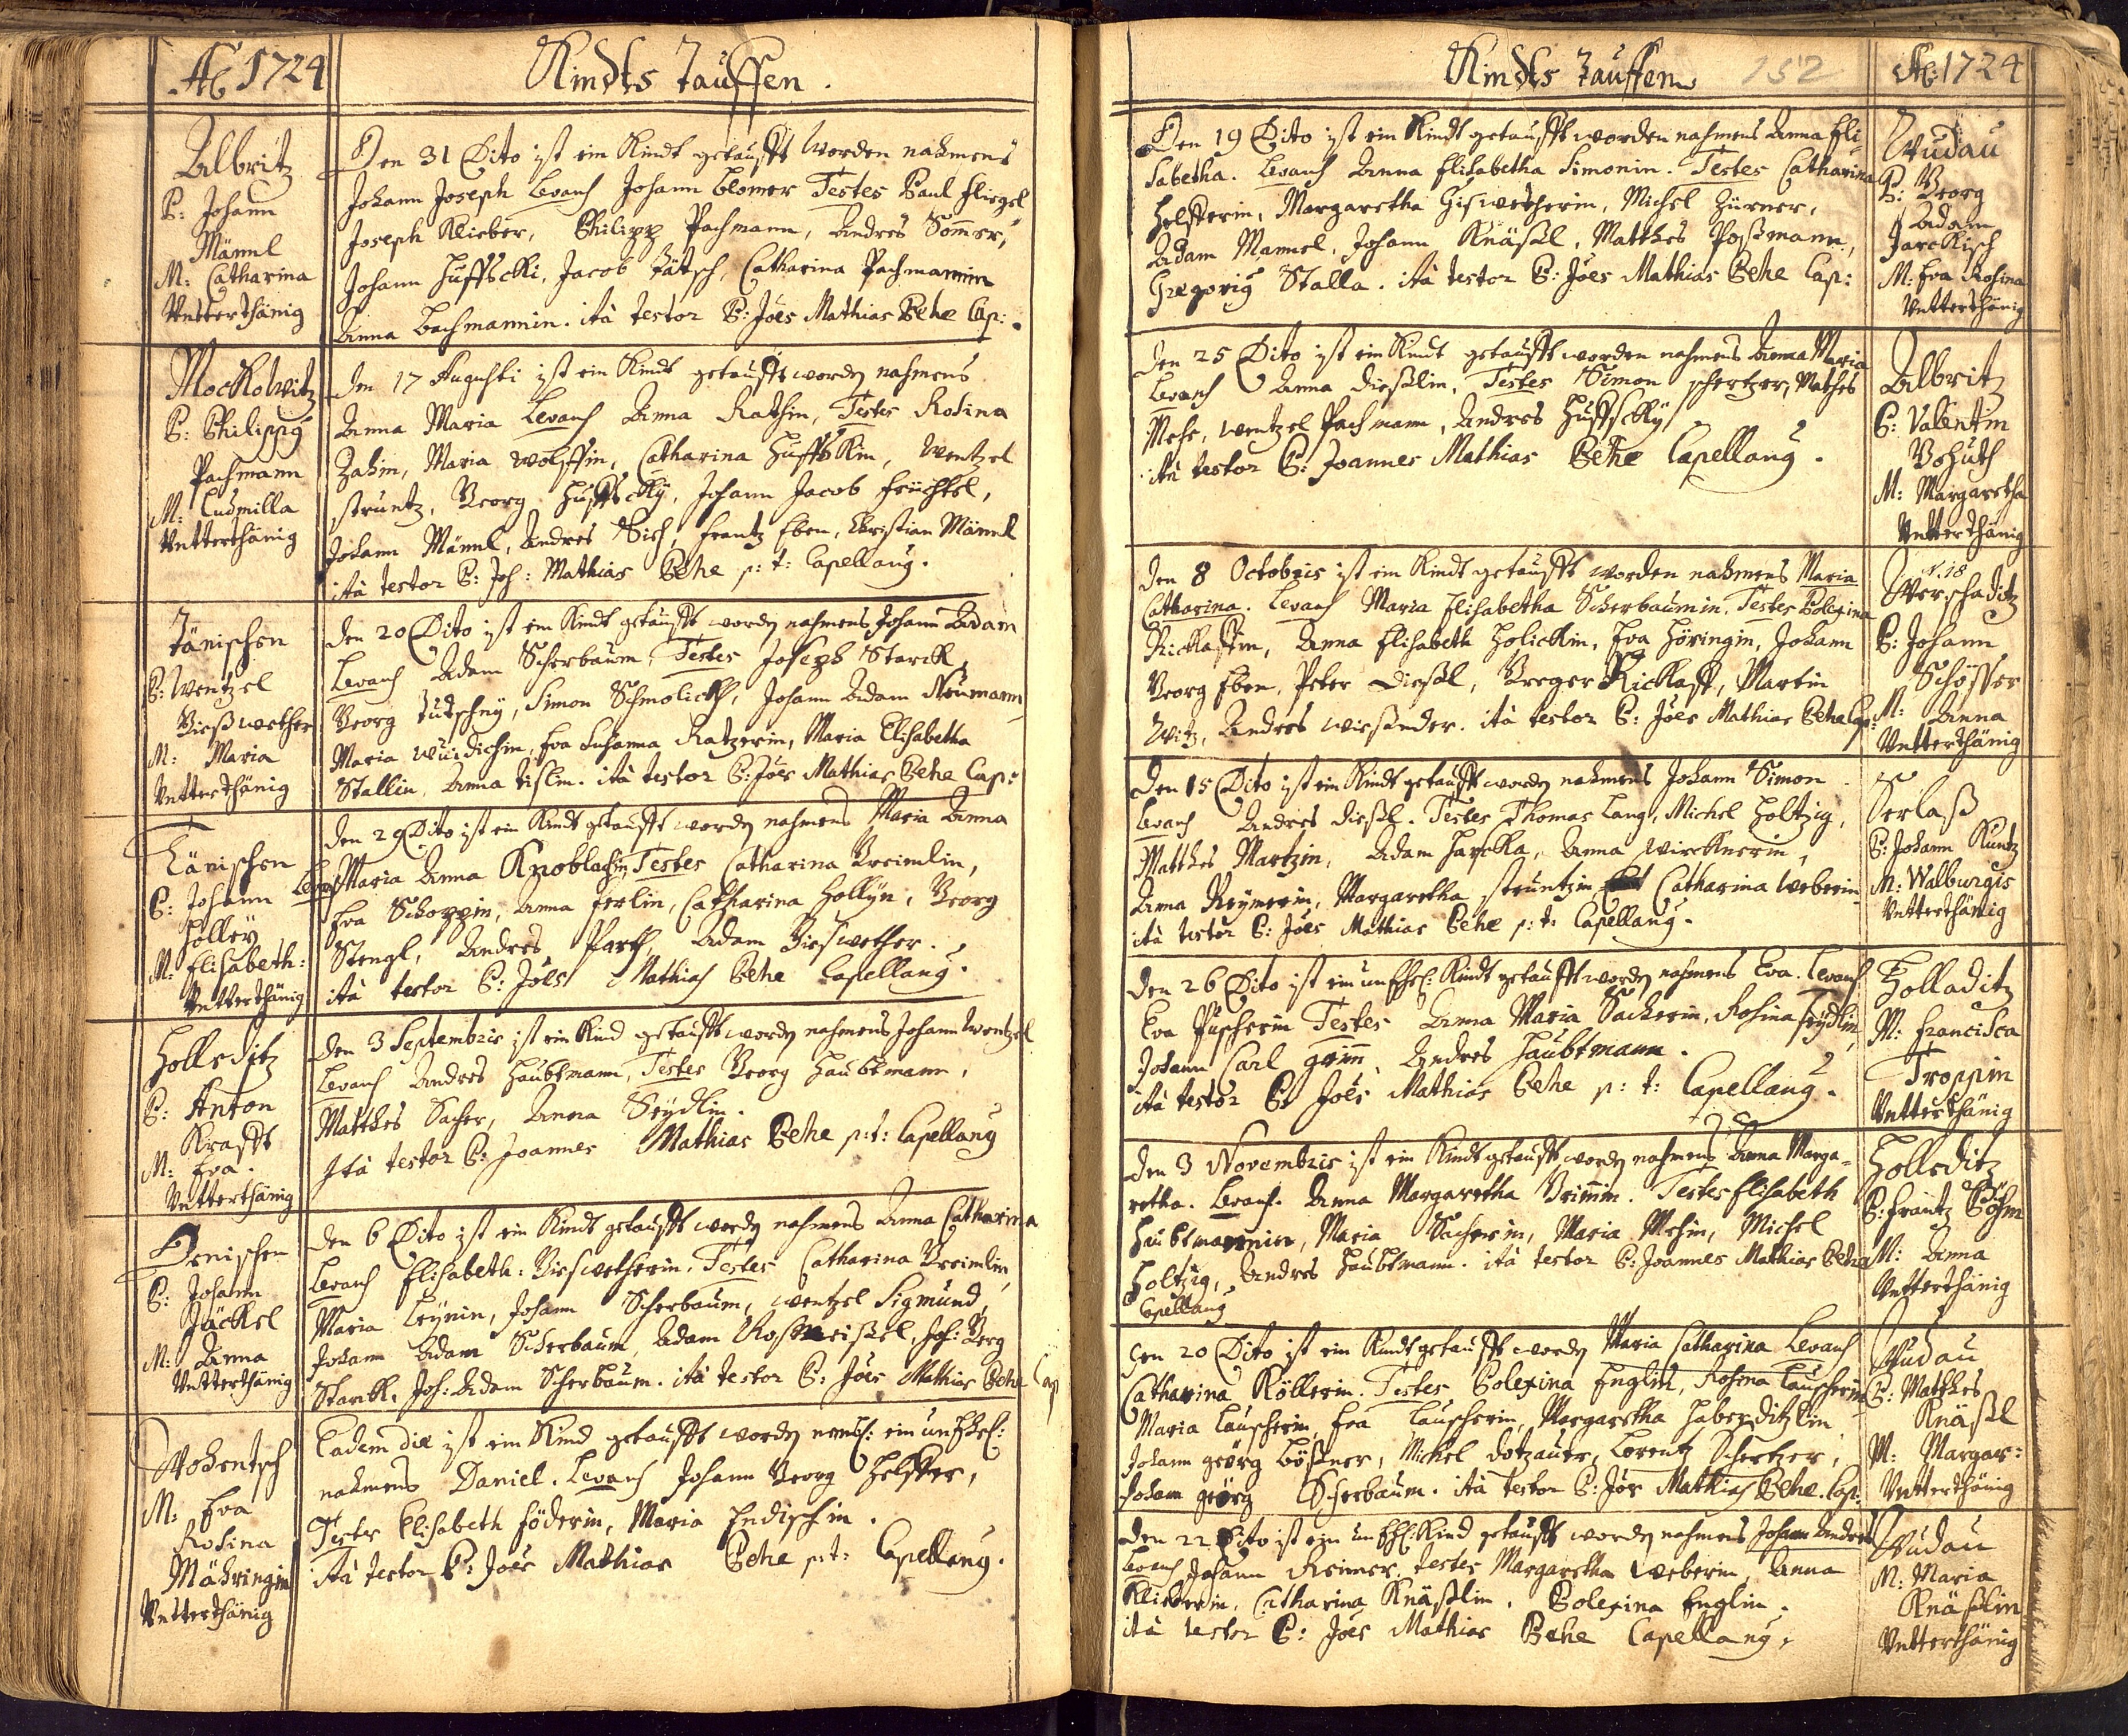 Ao 1724
Kindts Tauffen.
Albritz
P: Johann
Männl
M: Catharina
Vntterthänig
Den 31 Dito ist ein Kindt getaufft worden nahmens
Johann Joseph Levans Johann Blomer Testes Paul Fliegel
Joseph Klieber, Philipp Pachmann, Andres Sommer,
Johann Huffscki, Jacob Tätsch, Catharina Pachmannin
Anna Bachmannin. ità testor P: Joes Mathias Behe Cap:
Mockowitz
P: Philippg
Pachmann
M: Ludmilla
Vntterthänig
Den 17 Augusti ist ein Kindt getaufft worden nahmens
Anna Maria Levans Anna Rathin, Testes Rosina
Zahin, Maria Wolffin, Catharina Huffskin, Wentzel
Struntz, Georg Huffscky, Johann Jacob Früchtel,
Johann Männl, Andres Sich, Frantz Eben, Christian Männl
ità testor P: Joh: Mathias Behe p: t: Capellang.
Jänischen
P: Wentzel
Gießwether
M: Maria
Vntterthänig
Den 20 Dito ist ein Kindt getaufft worden nahmens Johann Adam
Levans Adam Scherbaum, Testes Joseph Starck,
Georg Tutschny, Simon Schmolick, Johann Adam Neumann
Maria, Eva Susanna Ratzerin, Maria Elisabetha
Stallin, Anna Tislin. ità testor P: Joes Mathias Behe Cap:
Jänischen
P: Johann
Holley
M: Elisabeth:
Vntterthänig
Den 29 Dito ist ein Kindt getaufft worden nahmens Maria Anna
Levans Maria Anna Knoblachin, Testes Catharina Greimlin,
Eva Schoppin, Anna Ferlin, Catharina Hollyn, Georg
Stengl, Andres Parth, Adam Gieswether.
ità testor P: Joes Mathias Behe Capellang.
Holleditz
P: Anton
Krafft
M: Eva.
Vntterthänig
Den 3 Septembris ist ein Kind getaufft worden nahmens Johann Wentzel
Levans Andres Haubtmann, Testes Georg Haubtmann,
Matthes Sacher, Anna Seydlin.
Ità testor P: Joannes Mathias Behe p: t: Capellang
Jenischen
P: Johann
Jäckel
M: Anna
Vntterthänig
Den 6 Dito ist ein Kindt getaufft worden nahmens Anna Catharina
Levans Elisabeth: Gieswetherin, Testes Catharina Greimlin,
Maria Leynin, Johann Scherbaum, Wentzel Sigmund,
Johann Adam Scherbaum, Adam Rosmeißel, Joh: Georg
Starck, Joh: Adam Scherbaum. ità testor P: Joes Mathias Behe Cap
Wohentsch
M: Eva
Rosina
Mähringin
Vntterthänig
Eadem die ist ein Kind getaufft worden neml: ein unEhel:
nahmens Daniel. Levans Johann Georg Helffer,
Testes Elisabeth Föderin, Maria Endischin.
ità testor P: Joes Mathias Behe p: t: Capellang.
Kindts Tauffen
152
Ao: 1724
Den 19 Dito ist ein Kindt getaufft worden nahmens Anna Eli-
sabetha. Levans Anna Elisabetha Simonin. Testes Catharina
Helfferin, Margaretha Gieswetherin, Michel Zürner,
Adam Mannel, Johann Knäßl, Matthes Poßmann,
Gregorig Stalla. ità testor P: Joes Mathias Behe Cap:
Wudau
P: Georg
Adam
Jarckisch
M: Eva Rosina
Vntterthänig
Den 25 Dito ist ein Kindt getaufft worden nahmens Anna Maria
Levans Anna Dießlin, Testes Simon Schertzer, Mathes
Mehe, Wentzel Pachmann, Andres Huffscky
ità testor P: Joannes Mathias Behe Capellang.
Albritz
P: Valentin
Bohuth
M: Margaretha
Vntterthänig
Den 8 Octobris ist ein Kindt getaufft worden nahmens Maria
Catharina. Levans Maria Elisabetha Scherbaumin. Testes Polexina
Ricklastin, Anna Elisabeth Holickin, Eva Höringin, Johann
Georg Eben, Peter Dießl, Greger Ricklast, Martin
Witz, Andres Wießender. ità testor P: Joes Mathias Behe Cap:
N. 18
Werschaditz
P: Johann
Schösser
M: Anna
Vntterthänig
Den 15 Dito ist ein Kindt getaufft worden nahmens Johann Simon
Levans Andres Dießl. Testes Thomas Lang, Michel Holtzig,
Matthes Martzin, Adam Harcka, Anna Wircknerin,
Anna Reymerin, Margaretha Struntzin Catharina Weberin
ità testor P: Joes Mathias Behe p: t: Capellang.
Serlaß
P: Johann Kuntz
M: Walburgis
Vntterthänig
Den 26 Dito ist ein unEhel: Kindt getaufft worden nahmens Eva. Levans
Eva Puscherin Testes Anna Maria Sackerin, Rosina Seydlin,
Johann Carl Grim, Andres Haubtmann.
ità testor P: Joes Mathias Behe p: t: Capellang.
Holladitz
M: Francisca
Troppin
Vntterthänig
Den 3 Novembris ist ein Kindt getaufft worden nahmens Anna Marga-
retha. Levans. Anna Margaretha Grimmin. Testes Elisabeth
Haubtmannin, Maria Sacherin, Maria Mehin, Michel
Holtzig, Andres Haubtmann. ità testor P: Joannes Mathias Behe
Capellang
Holleditz
P: Frantz Böhm
M: Anna
Vntterthänig
Den 20 Dito ist ein Kindt getaufft worden Maria Catharina Levans
Catharina Köllerin. Testes Polexina Englin, Rosina Lauscherin,
Maria Lauscherin, Eva Lauscherin, Margaretha Haberditzlin,
Johann Georg Lößner, Michel Dotzauer, Lorentz Schertzer,
Johann Georg Scherbaum. ità testor P: Joes Mathias Behe. Cap:
Wudau
P: Matthes
Knäßl
M: Margar:
Vntterthänig
Den 22 Dito ist ein unEhl: Kind getaufft worden nahmens Johann Andres
Levans Johann Reimer. Testes Margaretha Weberin, Anna
Klieberin, Catharina Knäßlin, Polexina Englin.
ità testor P: Joes Mathias Behe Capellang.
Wudau
M: Maria
Knäßlin
Vntterthänig